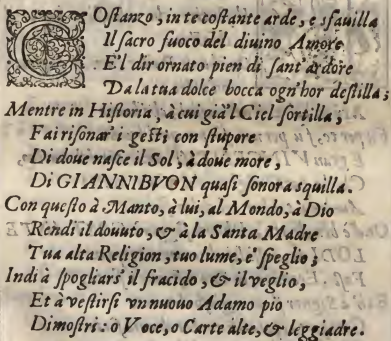 COstanzo, in te costante arde, e sfauilla
Il sacro fuoco del diuino Amore
E'l dir ornato pien di sant'ardore
Da la tua dolce bocca ogn'hor destilla;
Mentre in Historia, à cui gia'l Ciel sortilla,
Fai risonar i gesti con stupore
Di doue nasce il Sol, à doue more,
Di GIANNIBVON quasi sonora squilla.
Con questo à Manto, à lui, al Mondo, à Dio
Rendi il douuto, & à la Santa Madre
Tua alta Religion, tuo lume, e speglio;
Indi à spogliars' il fracido, & il veglio,
Et à vestirsi vn nuouo Adamo pio
Dimostri: o Voce, o Carte alte, & leggiadre.